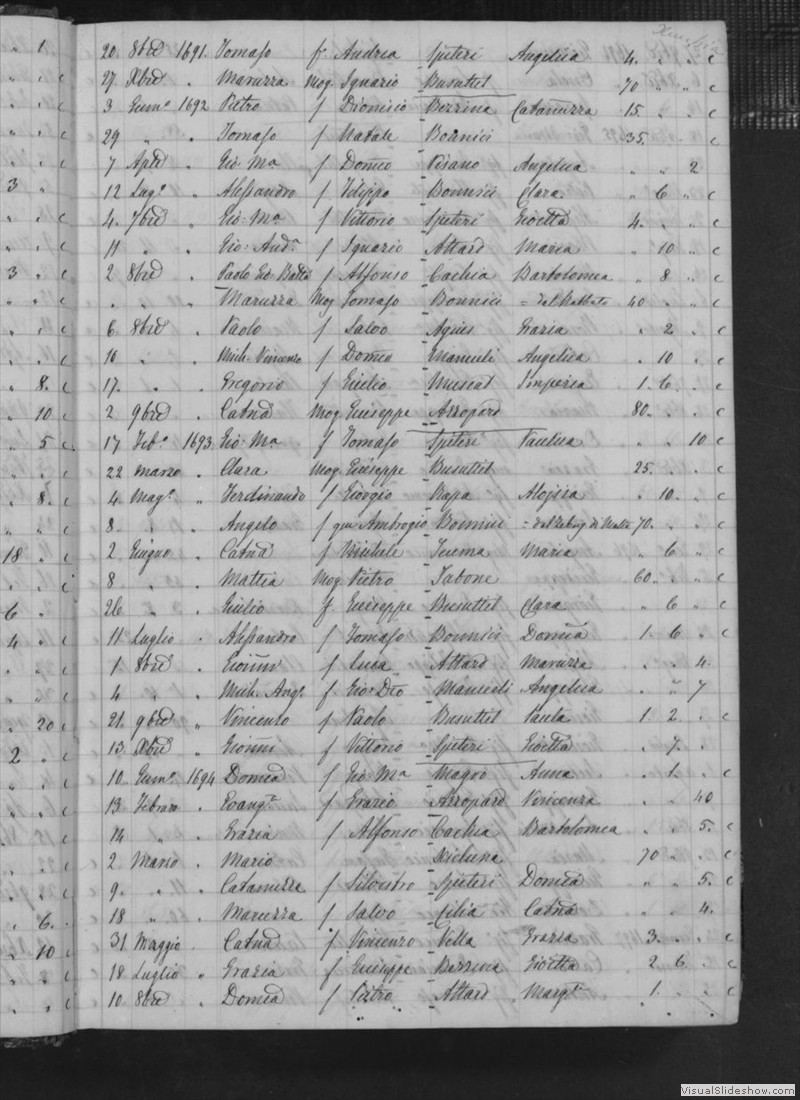 20. 8bre 1691. Tomaso f. Andrea Spiteri Angelica 4. " " c
27 Xbre " Maruzza Mog. Ignazio Busuttil 70 " " c
3 Genn.º 1692 Pietro f Dionisio Bezzina Catarinuzza 15. " " c
29 " " Tomaso f Natale Bonnici 35. c
7 Aple " Gio: Mª f Domco Pisano Angelica " " 2
12 Lug.º " Alessandro f Filippo Bonnici Clara. " 6 " c
4. 7bre " Gio: Mª f Vittorio Spiteri Gioetta 4. " " c
11 " " Gio: And.ª f Ignazio Attard Maria " 10 " c
2 8bre " Paolo Gio Batta f Alfonso Cachia Bartolomea " 8 " c
" " " Maruzza Mog Tomaso Bonnici = del Rabbato 40 " " c
6. 8bre " Paolo f Salvo Agius Grazia " 2 " c
16 " " Mich. Vincenzo f Domco Mamuli Angelica " 10 " c
17. " " Gregorio f Giulio Muscat Imperia 1. 6 " c
2 9bre " Catna Mog Giuseppe Azzopard 80. " " c
17 Feb.º 1693. Gio: Mª f Tomaso Spiteri Paulica " " 10 c
22 marzo " Clara Mog. Giuseppe Busuttil 25. " " c
4. Mag.º " Ferdinando f Giorgio Rapa Aloisia " 10. " c
8. " " Angelo f qm Ambrogio Bonnici = del Zebug di Malta 70. " " c
2 Giugno " Catna f Michele Teuma Maria " 6 " c
8 " " Mattia Mog Pietro Tabone 60. " " c
26 " " Giulio f. Giuseppe Busuttil Clara " 6 " c
11 Luglio " Alessandro f Tomaso Bonnici Domca 1. 6 " c
1 8bre " Gionni f Luca Attard Maruzza " " 4.
4 " " Mich. Ang.º f Gio: Dco Mamuli Angelica " " 7
21. 9bre " Vincenzo f Paolo Busuttil Paula 1. 2. " c
13. Xbre " Gionni f Vittorio Spiteri Gioetta " 7. "
10. Genn.º 1694 Domca f Gio: Mª Magro Anna " 1. " c
13 Febraro " Evang.ta f Grazio Azzopard Vincenza " " 40
14 " " Grazia f Alfonso Cachia Bartolomea " " 5. c
2 Marzo " Mario Xicluna 70 " " c
9. " " Catarinuzza f Silvestro Spiteri Domca " " 5. c
18 " " Maruzza f Salvo Cilia Catna " " 4.
31 Maggio " Catna f Vincenzo Vella Grazia 3. " " c
18 Luglio " Grazia f Giuseppe Bezzina Gioetta 2 6. " c
10 8bre " Domca f Pietro Attard Marg.ta 1. " " c
VisualSlideshow.com